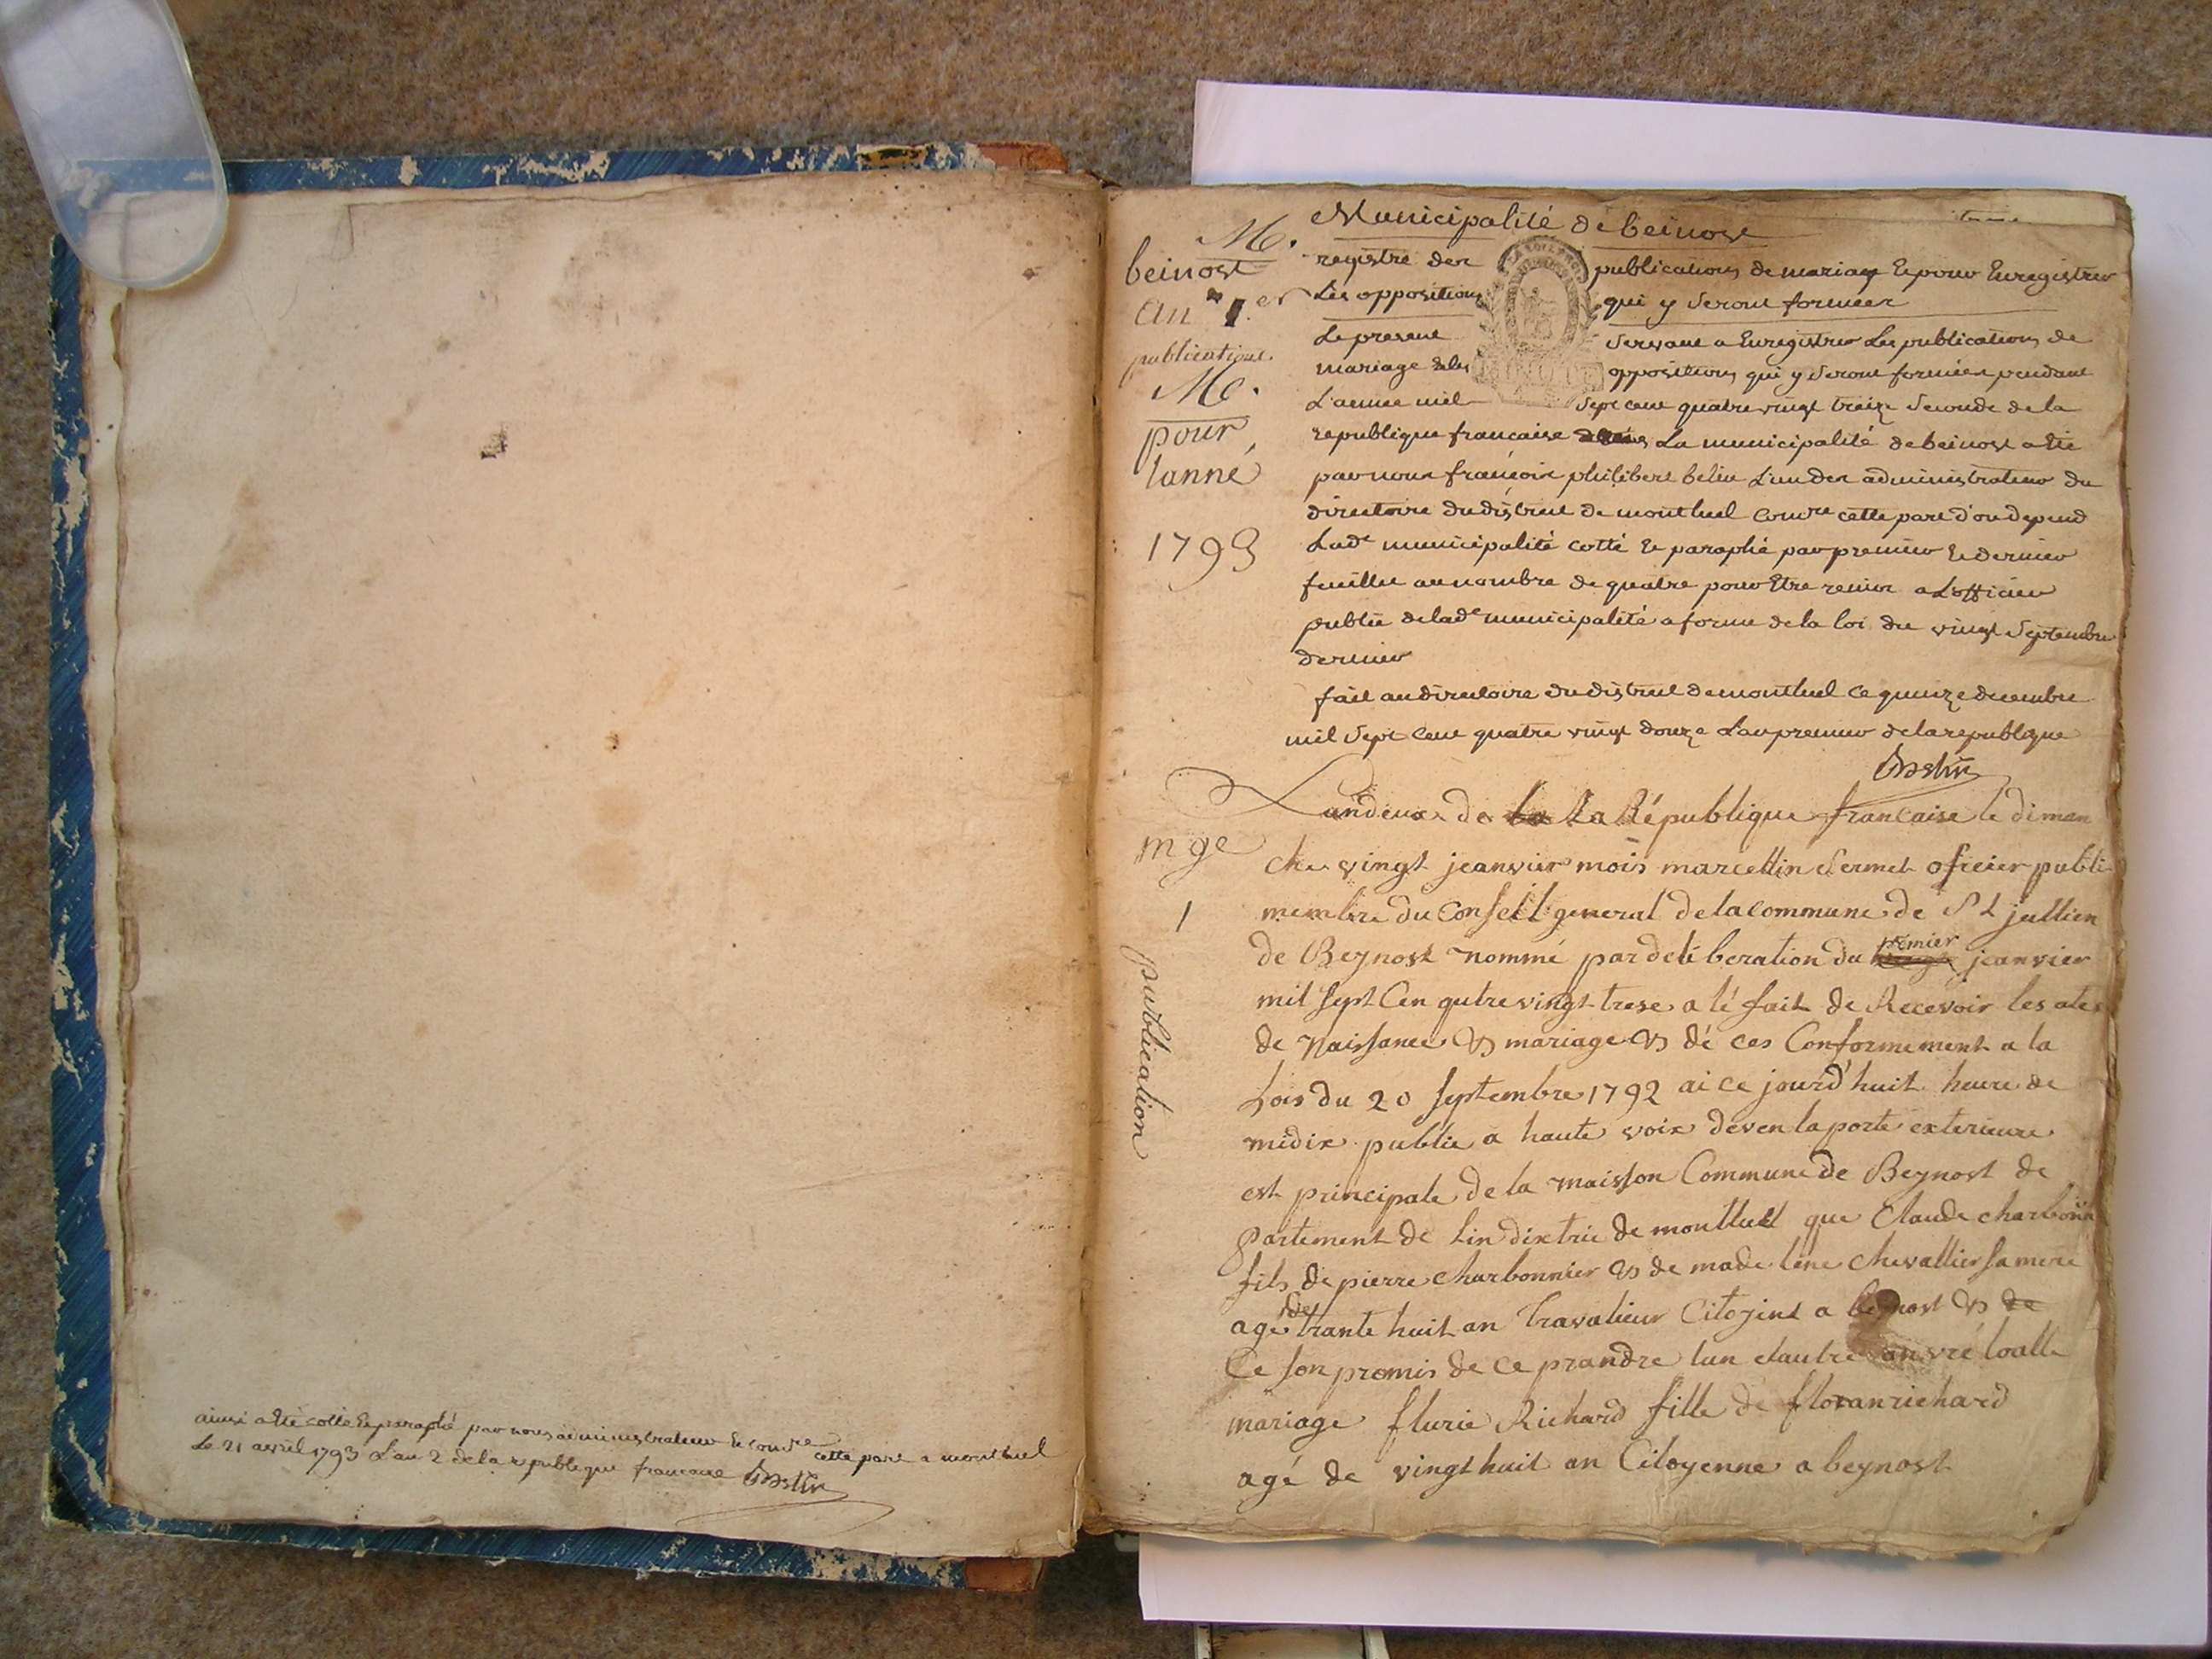 ainsi a été cotté et paraphé par nous administrateur et comre cette part a montluel
Le 21 avril 1793 L'an 2 de la republique francaise
M.
beinost
an 1.er
publications.
M.
pour
lanné
1793
m ge
1
publication
Municipalité de beinost
registre des publications de mariage et pour Enregistrer
Les oppositions qui y seront formées
Le present servant a Enregistrer Les publications de
mariage et les oppositions qui y seront formées pendant
L'annee mil sept cent quatre vingt treize seconde de la
republique francaise La municipalité de beinost a été
par nous françois philibert belin L'un des administrateurs du
directoire du district de montluel comre cette part d'ou depend
Lade municipalité cotté et paraphé par premier et dernier
feuillet au nombre de quatre pour Etre remis a L'officier
public de lade municipalité a forme de la loi du vingt septembre
dernier
fait au directoire du district de montluel ce quinze decembre
mil sept cent quatre vingt douze L'an premier de la republique
Landeux de la La République francaise le diman
che vingt jeanvier mois marcellin sermet oficier publi
membre du Conseil general de la commune de St jullien
de Beynost nommé par deliberation du premier jeanvier
mil sept Cen qutre vingt trese a lé fait de Recevoir les ates
de Naissance & mariage & dé ces Conformement a la
Lois du 20 septembre 1792 ai ce jourd'huit heure de
midix publié a haute voix deven la porte exterieure
est principale de la maisson Commune de Beynost de
partement de lin dixtric de montluel que Claude charbonn
fils de pierre charbonnier & de made léne chevallier sa mere
agé de trante huit an travalieur Citoyint a beynost & de
Ce son promis de ce prandre lun et lautre an vré loalle
mariage flurie Richard fille de floran richard
agé de vingt huit an Citoyenne a beynost